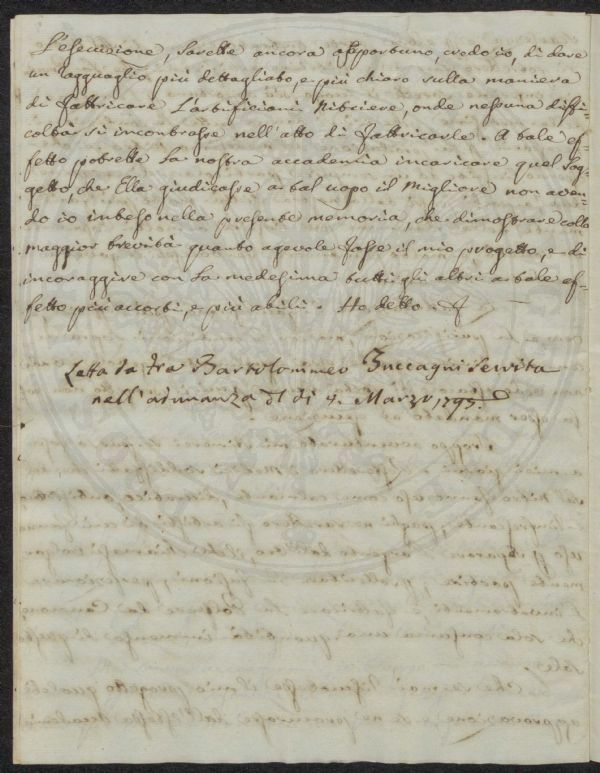 L'esecuzione, sarebbe ancora opportuno, credo io, di dare
un ragguaglio più dettagliato, e più chiaro sulla maniera
di fabbricare l'artificiami Nitriere, onde nessuna diffi-
coltà si incontrasse nell'atto di fabbricarle. A tale ef-
fetto potrebbe la nostra accademia incaricare quel sog-
getto, che Ella giudicasse a tal uopo il Migliore non aven-
do io inteso nella presente memoria, che dimostrare colla
maggior brevità quanto agevole fosse il mio progetto, e di
incoraggire con la medesima tutti gli altri a tale ef-
fetto più accorti, e più abili. Ho detto.
Letta da fra Bartolommeo Zuccagni Servita
nell'adunanza del dì 4. Marzo 1795.